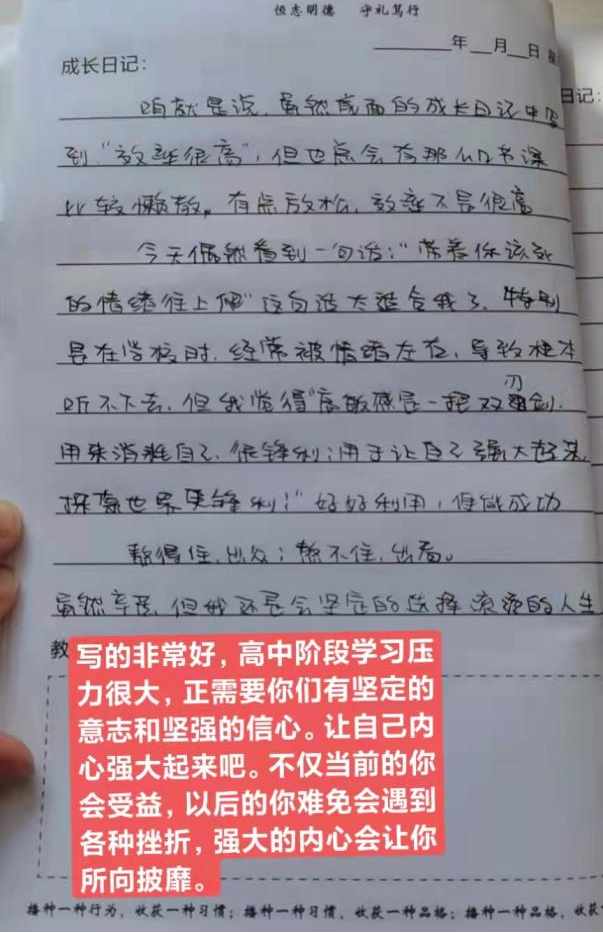 恒志明德 守礼笃行
年 月 日 星
成长日记:
日记:
咱就是说,虽然前面的成长日记中写
到“效率很高”,但也总会有那么几节课
比较懒散,有点放松,效率不是很高
今天偶然看到一句话:“带着你该死
的情绪往上爬”这句话太适合我了,特别
是在学校时,经常被情绪左右,导致根本
听不下去,但我觉得“高敏感是一把双刃剑,
用来消耗自己,很锋利;用于让自己强大起来
探索世界更锋利!”好好利用,便能成功
熬得住,出众;熬不住,出局。
虽然辛苦,但我还是会坚定的选择滚烫的人生
教
写的非常好,高中阶段学习压
力很大,正需要你们有坚定的
意志和坚强的信心。让自己内
心强大起来吧。不仅当前的你
会受益,以后的你难免会遇到
各种挫折,强大的内心会让你
所向披靡。
播种一种行为,收获一种习惯;播种一种习惯,收获一种品格;播种一种品格,收获